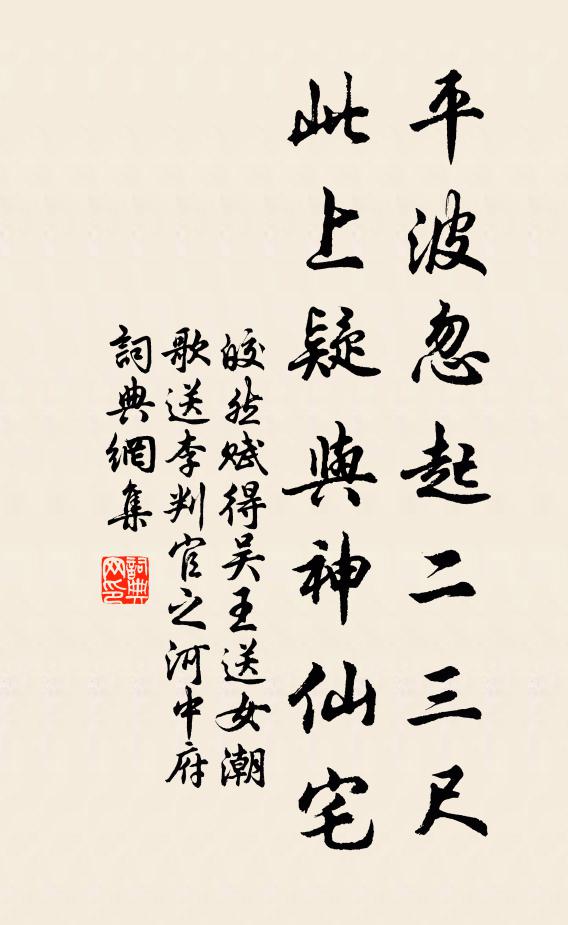 平波忽起二三尺
此上疑與神仙宅
皎然賦得吴王送女潮
歌送李判官之河中府
詞典網集
詞典
网印